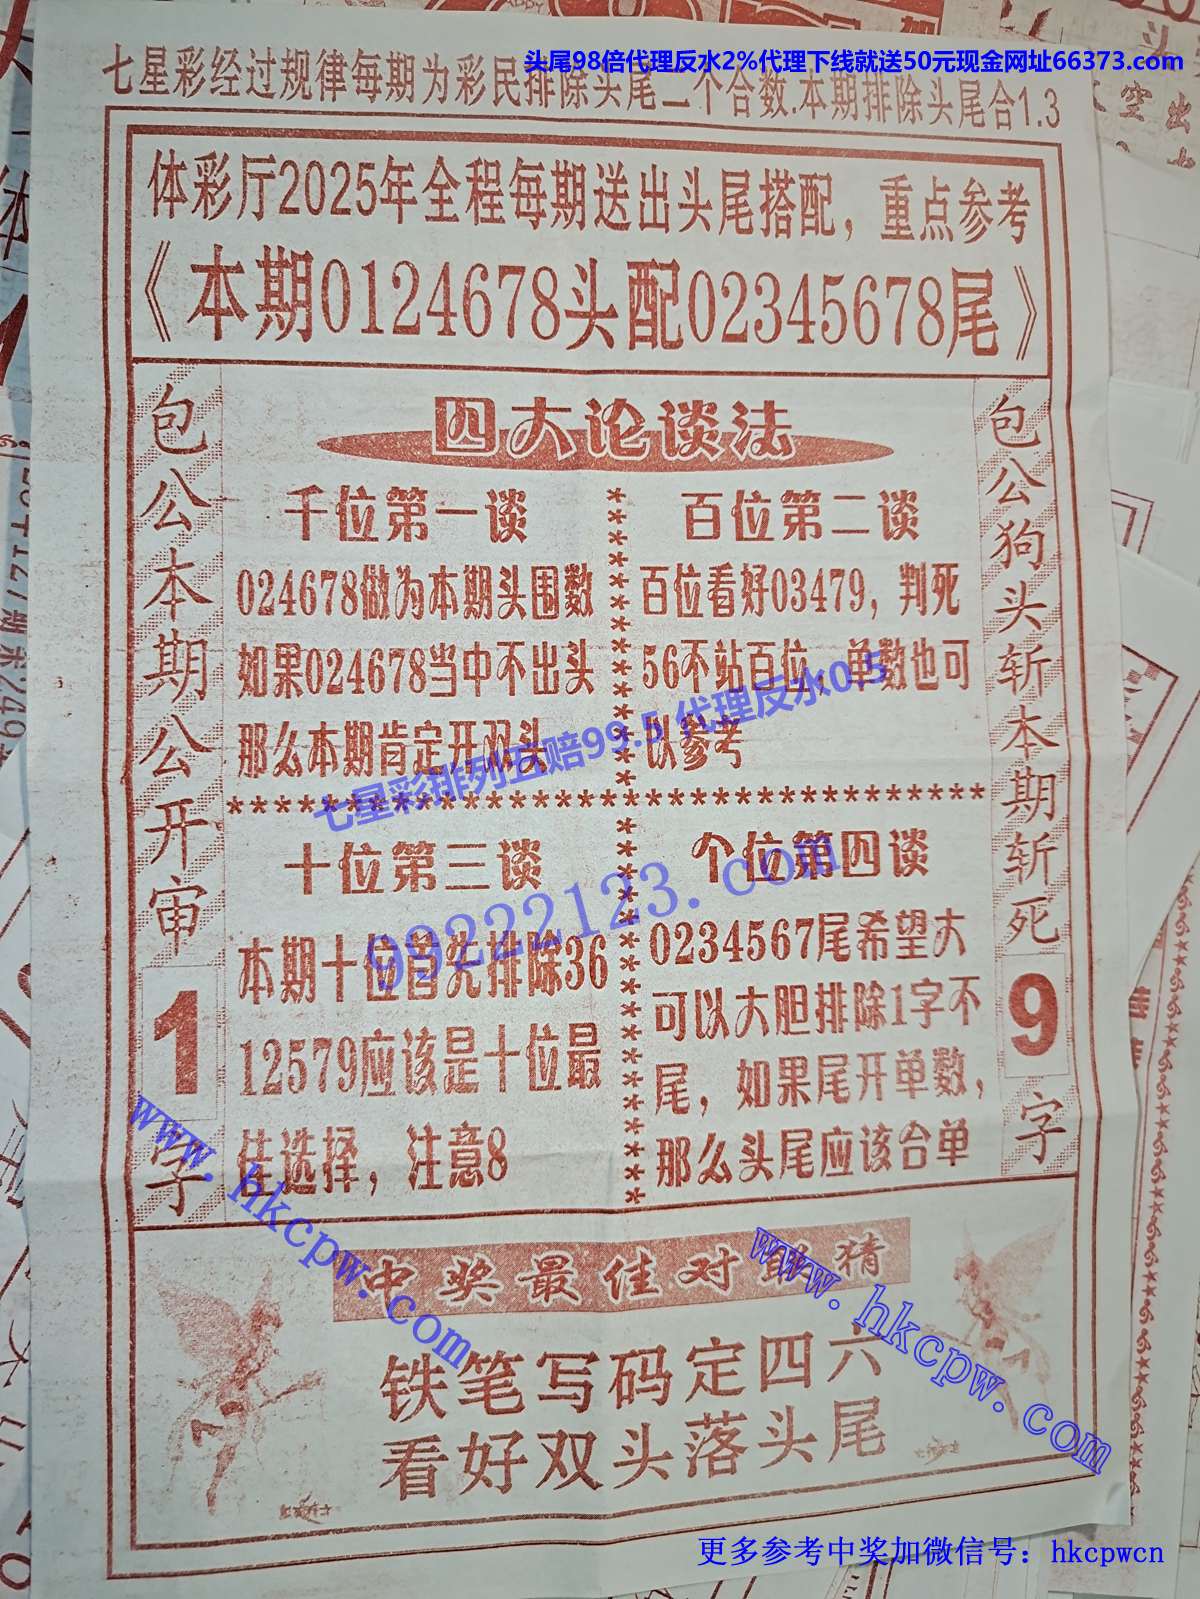 头尾98倍代理反水2%代理下线就送50元现金网址66373.com
七星彩经过规律每期为彩民排除头尾二个合数.本期排除头尾合1.3
体彩厅2025年全程每期送出头尾搭配，重点参考
《本期0124678头配02345678尾》
包公本期公开审
1
字
四大论谈法
千位第一谈
024678做为本期头围数
如果024678当中不出头
那么本期肯定开双头
百位第二谈
百位看好03479，判死
56不站百位，单数也可
以参考
七星彩排列五赔99.5 代理反水0.5
********************************
十位第三谈
本期十位首先排除36
12579应该是十位最
佳选择，注意8
99222123.com
个位第四谈
0234567尾希望大
可以大胆排除1字不
尾，如果尾开单数，
那么头尾应该合单
包公狗头斩本期斩死
9
字
www.hkcpw.com
www.hkcpw.com
中奖最佳对联猜
铁笔写码定四六
看好双头落头尾
更多参考中奖加微信号：hkcpwcn